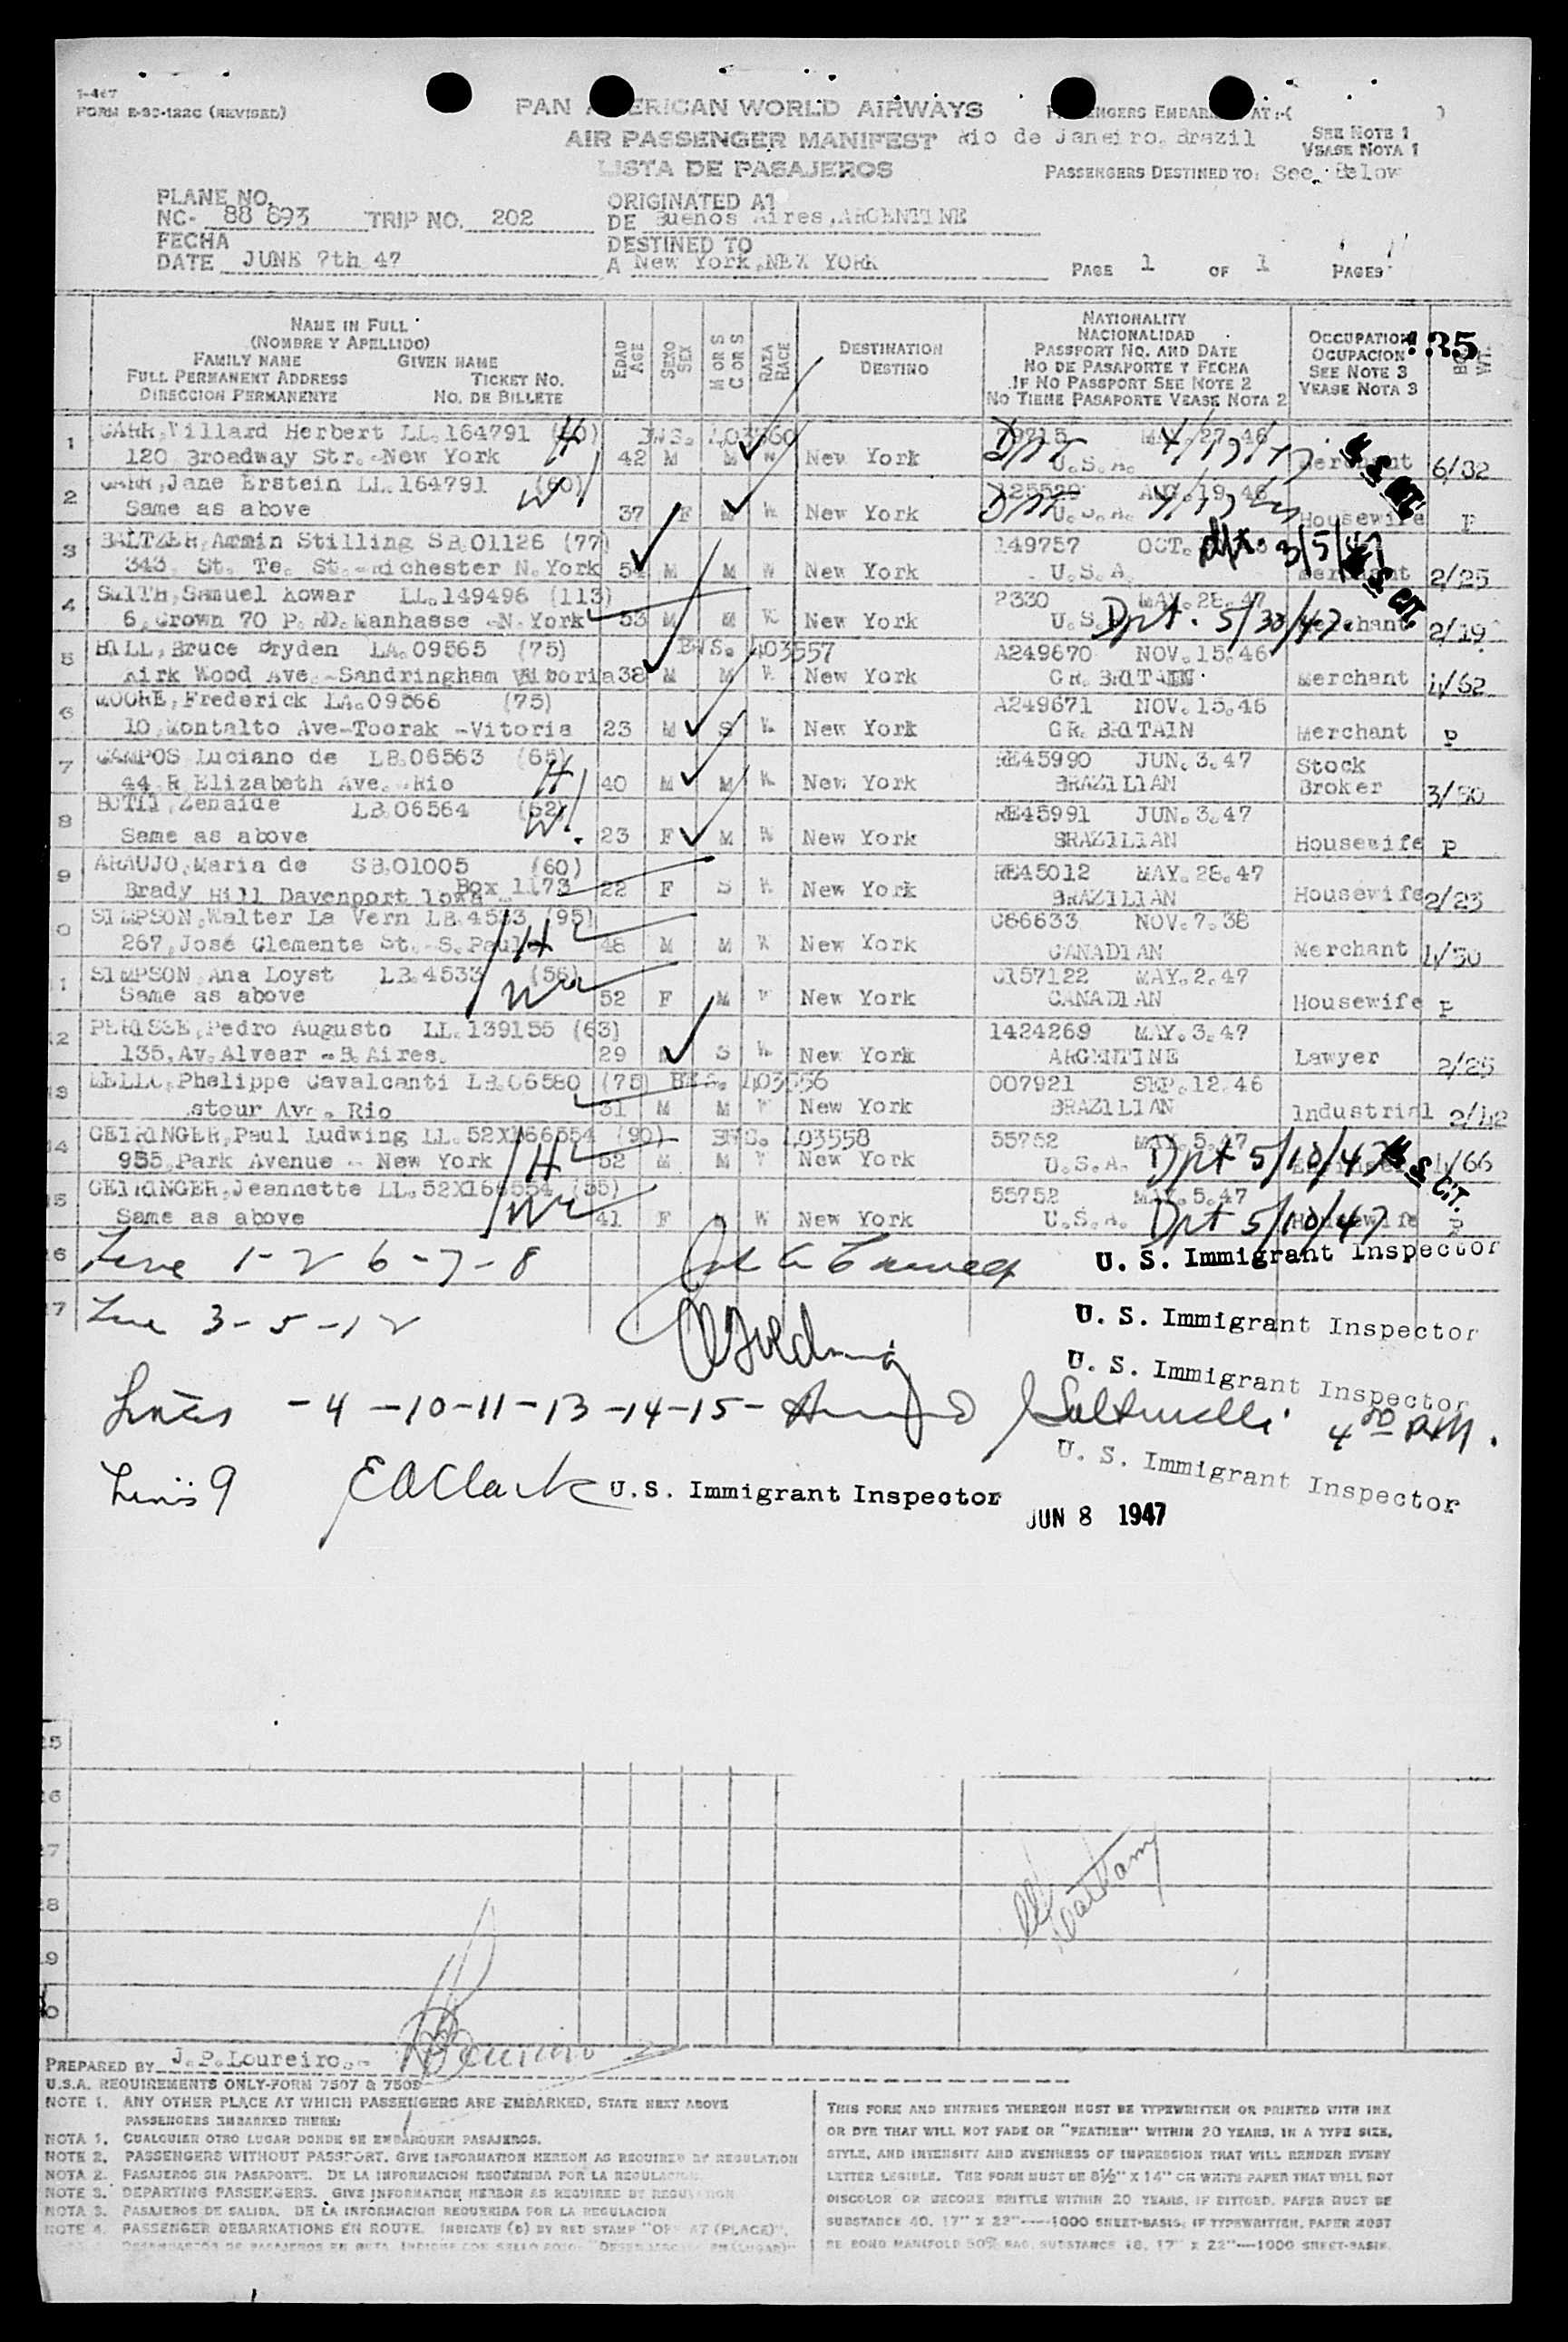 I-467
FORM E-SC-122C (REVISED)
PAN AMERICAN WORLD AIRWAYS
AIR PASSENGER MANIFEST
LISTA DE PASAJEROS
PASSENGERS EMBARKED AT:-( )
Rio de Janeiro, Brazil
SEE NOTE 1
VEASE NOTA 1
PASSENGERS DESTINED TO: See Below
PLANE NO.
NC- 88 893 TRIP NO. 202
FECHA
DATE JUNE 7th 47
ORIGINATED AT
DE Buenos Aires, ARGENTINE
DESTINED TO
A New York, NEW YORK
PAGE 1 OF 1 PAGES
NAME IN FULL
(NOMBRE Y APELLIDO)
FAMILY NAME GIVEN NAME
FULL PERMANENT ADDRESS TICKET NO.
DIRECCION PERMANENTE NO. DE BILLETE
EDAD AGE
SEXO SEX
M OR S
C OR S
RAZA RACE
DESTINATION
DESTINO
NATIONALITY
NACIONALIDAD
PASSPORT NO. AND DATE
NO DE PASAPORTE Y FECHA
IF NO PASSPORT SEE NOTE 2
NO TIENE PASAPORTE VEASE NOTA 2
OCCUPATION
OCUPACION
SEE NOTE 3
VEASE NOTA 3
135
1 CARR, Willard Herbert LL.164791 H BWS. 403560 MAY.27.46
120 Broadway Str.-New York 42 M M W New York U.S.A. Merchant 6/82
2 CARR, Jane Erstein LL.164791 (60) W 125529 AUG.19.46
Same as above 37 F M W New York U.S.A. Housewife P
3 BALTZER, Armin Stilling SB.01126 (77) 149757 OCT. dpt. 3/5/47
343, St. Te. St.-Richester N.York 54 M M W New York U.S.A. Merchant 2/25
4 SMITH, Samuel Kowar LL.149496 (113) 2330 MAY.28.47
6, Crown 70 P. RD. Manhasse -N.York 53 M M W New York U.S. Dpt. 5/30/47. Merchant 2/19
5 HALL, Bruce Dryden LA.09565 (75) BWS. 403557 A249670 NOV.15.46
Kirk Wood Ave.-Sandringham Vitoria 38 M M W New York GR. BRITAIN Merchant 4/62
6 MOORE, Frederick LA.09566 (75) A249671 NOV.15.46
10, Montalto Ave-Toorak -Vitoria 23 M S W New York GR. BRITAIN Merchant P
7 CAMPOS Luciano de LB.06563 (65) H RE45990 JUN.3.47 Stock
44, R Elizabeth Ave.-Rio 40 M M W New York BRAZILIAN Broker 3/50
8 Zenaide LB.06564 (52) W RE45991 JUN.3.47
Same as above 23 F M W New York BRAZILIAN Housewife P
9 ARAUJO, Maria de SB.01005 (60) RE45012 MAY.28.47
Brady Hill Davenport Iowa Box 1173 22 F S W New York BRAZILIAN Housewife 2/23
0 SIMPSON, Walter La Vern LB.4533 (95) C66633 NOV.7.38
267, José Clemente St.-S.Paulo H 48 M M W New York CANADIAN Merchant 4/50
1 SIMPSON Ana Loyst LB.4533 (56) C157122 MAY.2.47
Same as above W 52 F M W New York CANADIAN Housewife P
12 PERISSE, Pedro Augusto LL.139155 (63) 1424269 MAY.3.47
135, Av. Alvear -B.Aires. 29 S W New York ARGENTINE Lawyer 2/25
13 Phelippe Cavalcanti LB.06580 (75) 403556 007921 SEP.12.46
Ave. Rio 31 M M W New York BRAZILIAN Industrial 2/42
14 GEIRINGER, Paul Ludwing LL.52X166554 (90) BWS. 403558 55752 MAY.5.47
955, Park Avenue - New York H 52 M M W New York U.S.A. Dpt 5/10/47 U.S. CIT. 4/66
15 GEIRINGER, Jeannette LL.52X166554 (55) 55752 MAY.5.47
Same as above W 41 F W New York U.S.A. Dpt 5/10/47 Housewife P
16 Line 1-2 6-7-8 U. S. Immigrant Inspector
17 Line 3-5-12 U. S. Immigrant Inspector
U. S. Immigrant Inspector
Lines -4-10-11-13-14-15- 4 30 PM.
U. S. Immigrant Inspector
Line 9 E A Clark U.S. Immigrant Inspector
JUN 8 1947
25
26
27
28
29
30
PREPARED BY J.P.Loureiro.-
U.S.A. REQUIREMENTS ONLY-FORM 7507 & 7509
NOTE 1. ANY OTHER PLACE AT WHICH PASSENGERS ARE EMBARKED, STATE NEXT ABOVE
PASSENGERS EMBARKED THERE:
NOTA 1. CUALQUIER OTRO LUGAR DONDE SE EMBARQUEN PASAJEROS.
NOTE 2. PASSENGERS WITHOUT PASSPORT. GIVE INFORMATION HEREON AS REQUIRED BY REGULATION
NOTA 2. PASAJEROS SIN PASAPORTE. DE LA INFORMACION REQUERIDA POR LA REGULACION
NOTE 3. DEPARTING PASSENGERS. GIVE INFORMATION HEREON AS REQUIRED BY REGULATION
NOTA 3. PASAJEROS DE SALIDA. DE LA INFORMACION REQUERIDA POR LA REGULACION
NOTE 4. PASSENGER DEBARKATIONS EN ROUTE. INDICATE (D) BY RED STAMP "OFF AT (PLACE)".
THIS FORM AND ENTRIES THEREON MUST BE TYPEWRITTEN OR PRINTED WITH INK
OR DYE THAT WILL NOT FADE OR "FEATHER" WITHIN 20 YEARS, IN A TYPE SIZE,
STYLE, AND INTENSITY AND EVENNESS OF IMPRESSION THAT WILL RENDER EVERY
LETTER LEGIBLE. THE FORM MUST BE 8½" X 14" ON WHITE PAPER THAT WILL NOT
DISCOLOR OR BECOME BRITTLE WITHIN 20 YEARS. IF DITTOED, PAPER MUST BE
SUBSTANCE 40, 17" X 22"----1000 SHEET-BASIS; IF TYPEWRITTEN, PAPER MUST
BE BOND MANIFOLD 50% RAG, SUBSTANCE 18, 17" X 22"----1000 SHEET-BASIS.